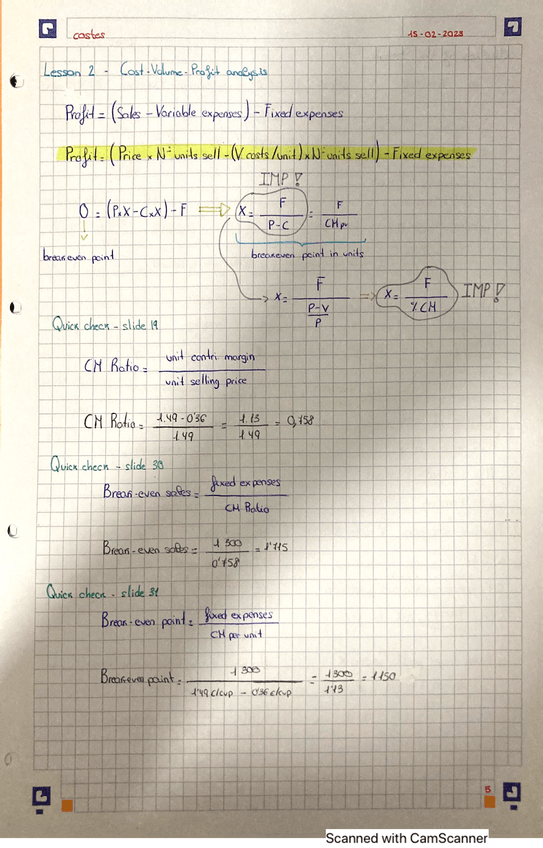 costes 15-02-2023
Lesson 2 - Cost-Volume-Profit analysis
Profit = (Sales - Variable expenses) - Fixed expenses
Profit = (Price x Nº units sell - (V costs/unit) x Nº units sell) - Fixed expenses
IMP!
0 = (PxX - CxX) - F ⇒ X = F / P-C = F / CM pu
breakeven point breakeven point in units
→ X = F / (P-V / P) ⇒ X = F / % CM IMP!
Quick check - slide 19
CM Ratio = unit contri margin / unit selling price
CM Ratio = 1.49 - 0'36 / 1.49 = 1.13 / 1.49 = 0,758
Quick check - slide 30
Break-even sales = fixed expenses / CM Ratio
Break-even sales = 1 300 / 0'758 = 1'715
Quick check - slide 31
Break-even point = fixed expenses / CM per unit
Breakeven point = 1 300 / 1'49 c/cup - 0'36 c/cup = 1300 / 1'13 = 1150
5
Scanned with CamScanner